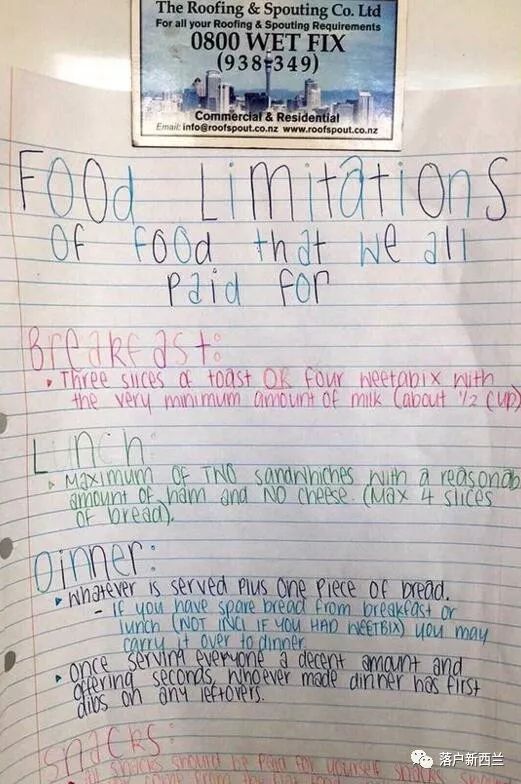 The Roofing & Spouting Co. Ltd
For all your Roofing & Spouting Requirements
0800 WET FIX
(938-349)
Commercial & Residential
Email: info@roofspout.co.nz www.roofspout.co.nz
Food Limitations
of food that we all
paid for
Breakfast:
• Three slices of toast OR four weetabix with
the very minimum amount of milk (about 1/2 cup)
Lunch:
• Maximum of TWO sandwhiches with a reasonab
amount of ham and NO cheese. (Max 4 slices
of bread).
Dinner:
• Whatever is served plus one piece of bread.
- If you have spare bread from breakfast or
lunch (NOT INCL IF YOU HAD WEETBIX) you may
carry it over to dinner.
• Once serving everyone a decent amount and
offering seconds, whoever made dinner has first
dibs on any leftovers.
Snacks:
snacks should be paid for yourself
from the
落户新西兰